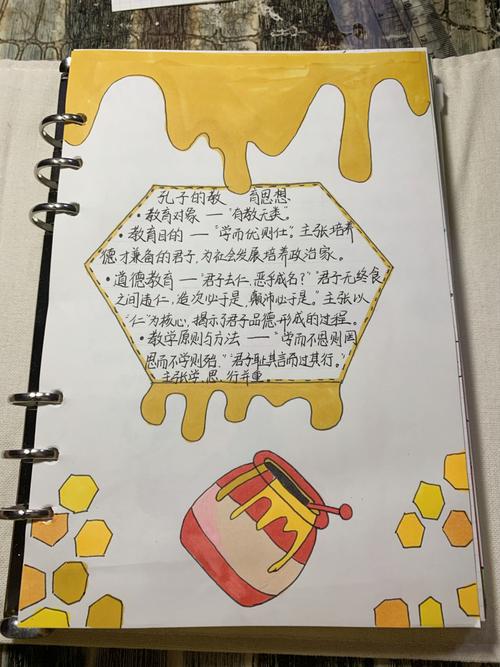 孔子的教 育思想
• 教育对象 —— "有教无类"。
• 教育目的 —— "学而优则仕"。主张培养
德才兼备的君子，为社会发展培养政治家。
• 道德教育 —— "君子去仁，恶乎成名？" "君子无终食
之间违仁，造次必于是，颠沛必于是。"主张以
"仁"为核心，揭示了君子品德形成的过程。
• 教学原则与方法 —— "学而不思则罔
思而不学则殆，" "君子耻其言而过其行。"
主张学、思、行并重